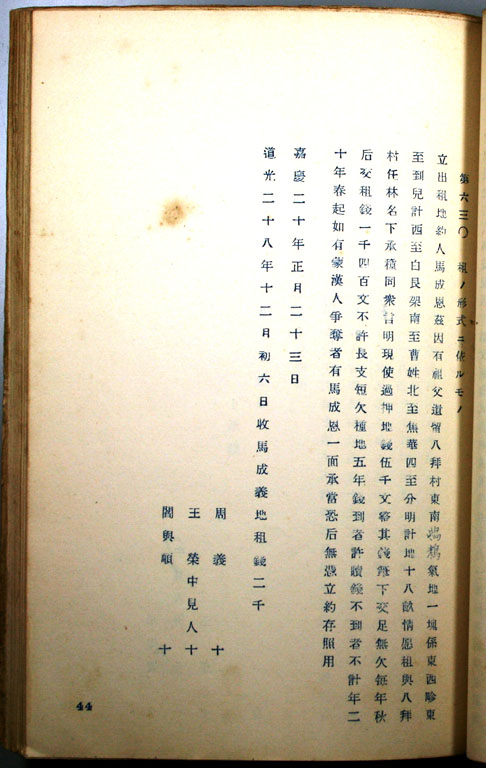 第六三〇 租ノ形式ニ依ルモノ
立出租地約人馬成恩茲因有祖父遺留八拜村東南鴉鵲氣地一塊係東西畛東
至到兒計西至白良架南至曹姓北至焦華四至分明計地十八畝情愿租與八拜
村任林名下承種同衆言明現使過押地錢伍千文整其錢筆下交足無欠每年秋
后交租錢一千四百文不許長支短欠種地五年錢到者許贖錢不到者不計年二
十年春起如有蒙漢人爭奪者有馬成恩一面承當恐后無憑立約存照用
嘉慶二十年正月二十三日
道光二十八年十二月初六日收馬成義地租錢二千
周義十
王榮中見人十
閻興順十
44